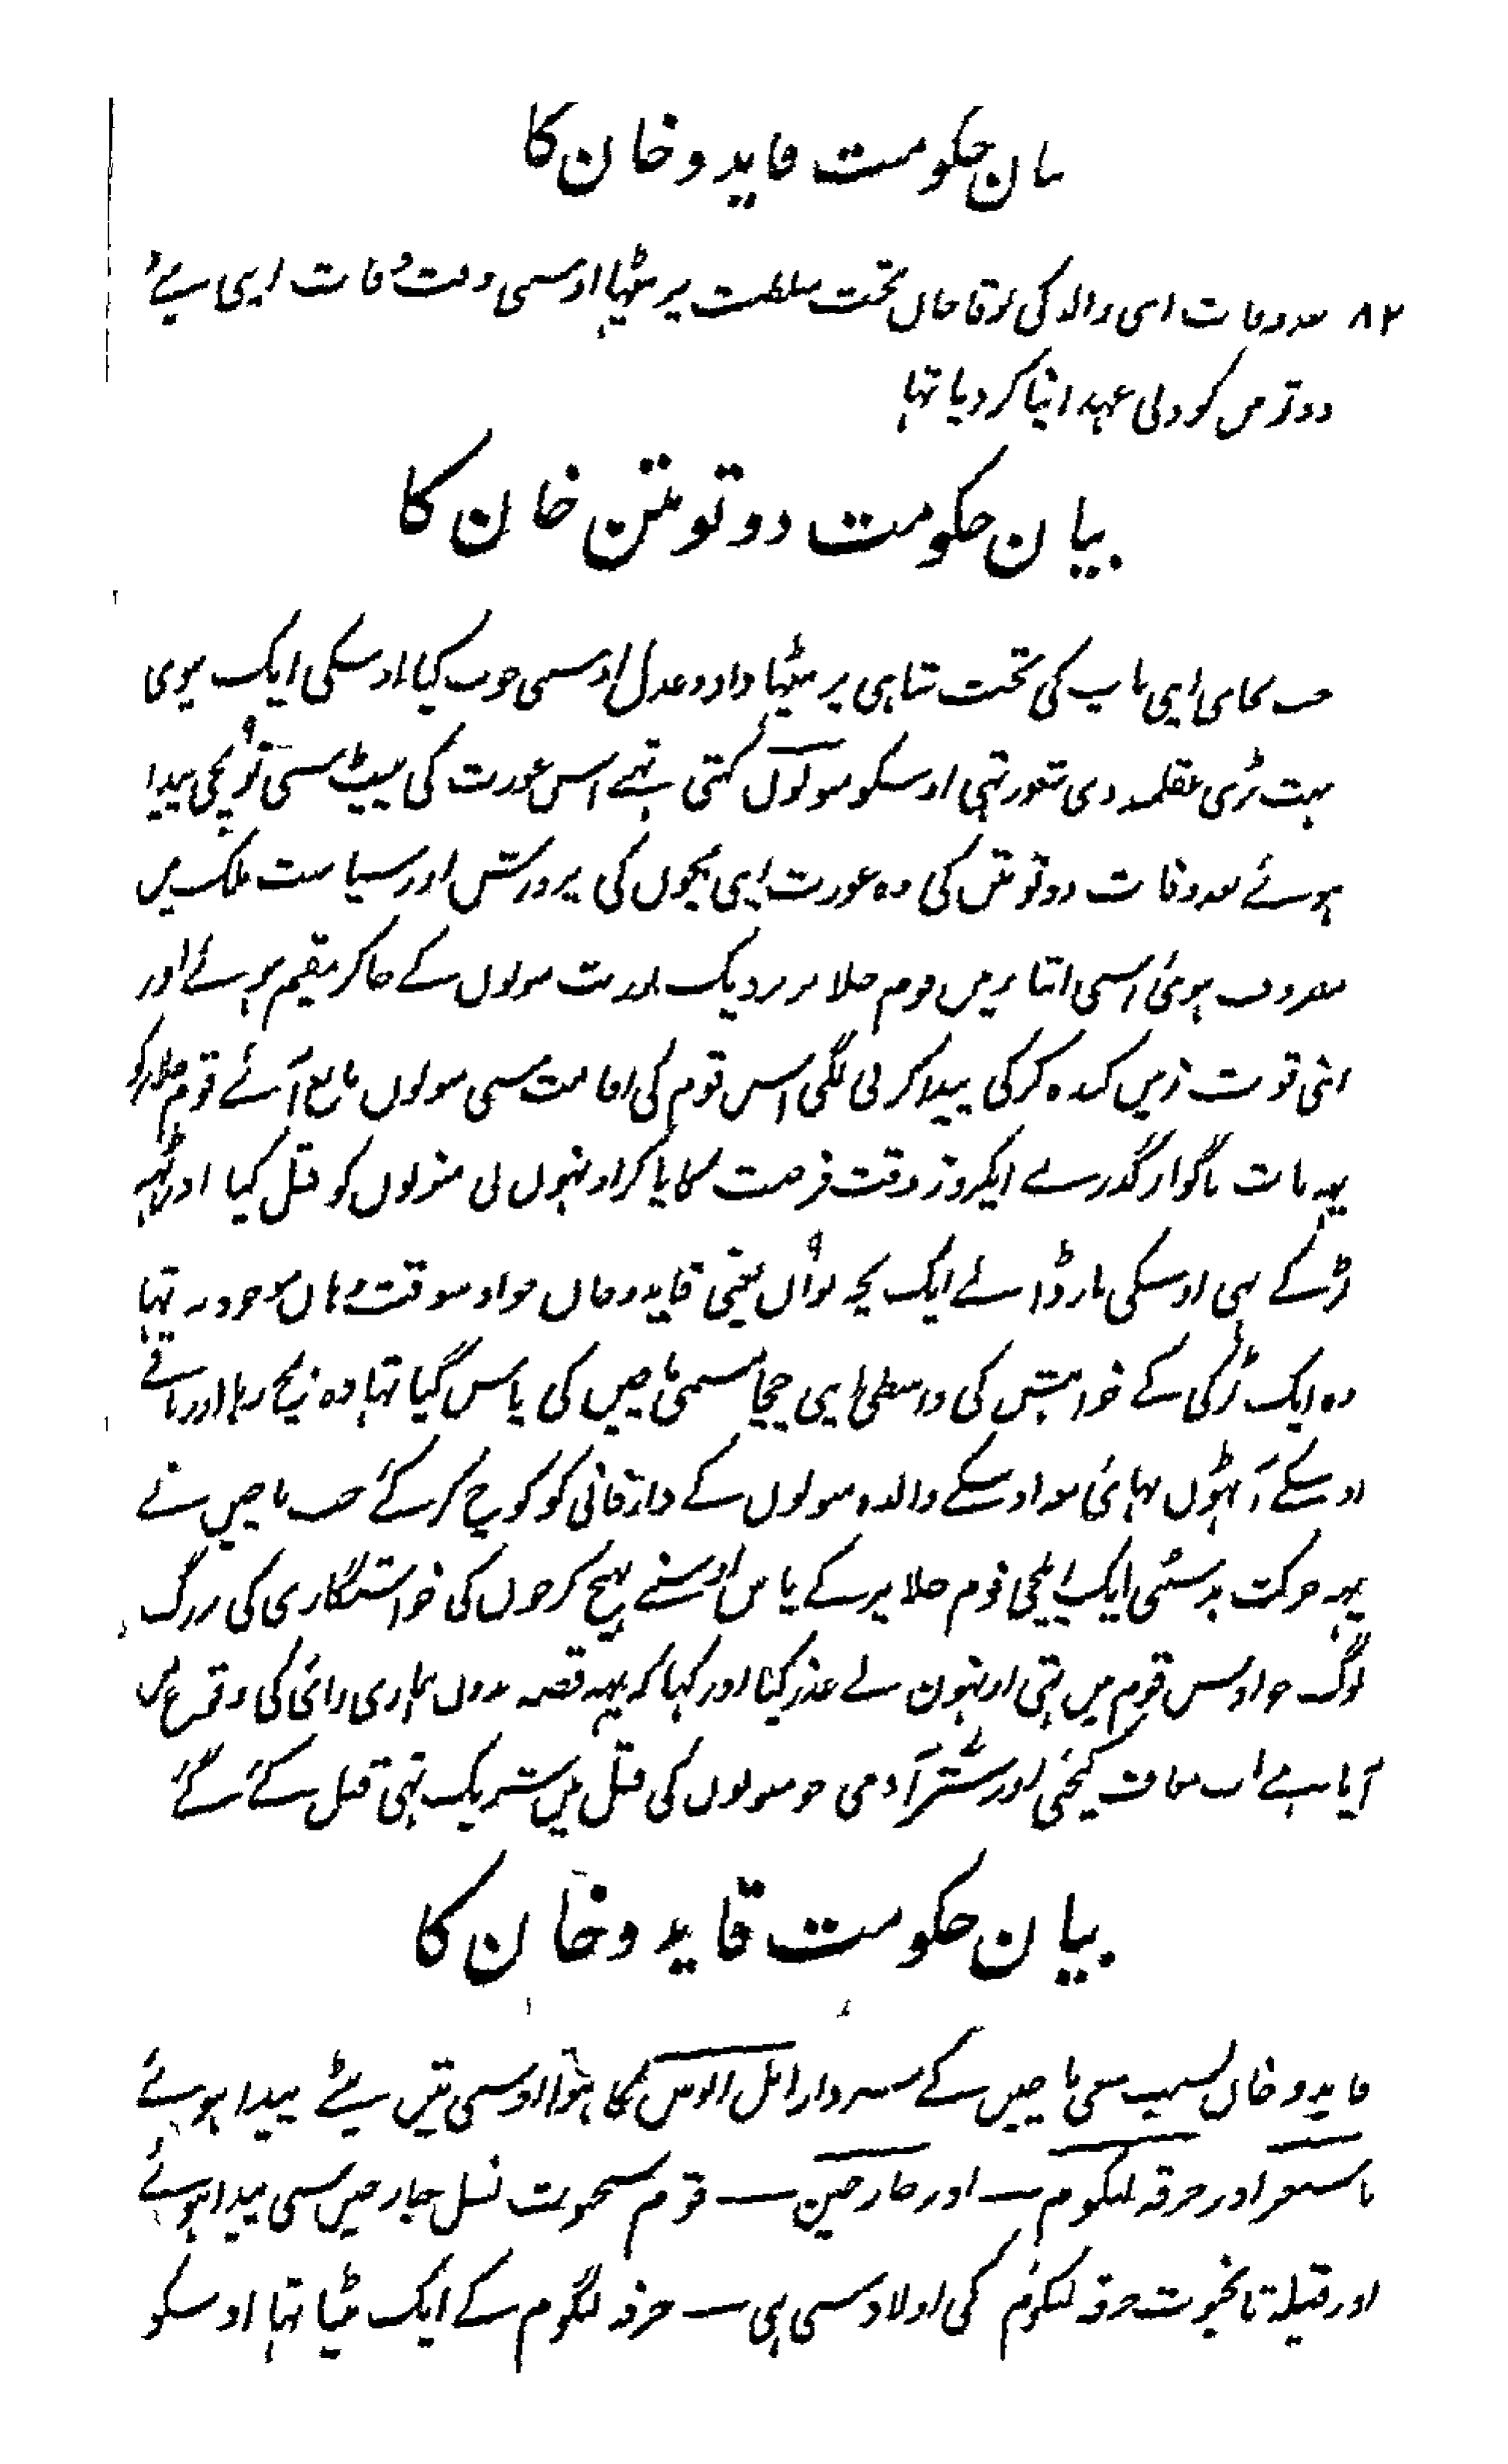 بیان حکومت قایدوخان کا
۸۲ بعد وفات اپنی والد کی بوقا خان تخت سلطنت پر بیٹہا اوسی وقت وفات اپنی بیٹے
دوتومنن کو ولی عہد اپنا کر دیا تہا
بیان حکومت دوتومنن خان کا
جب بجای اپنی باپ کی تخت شاہی پر بیٹہا داد و عدل اوسی خوب کیا اوسکی ایک بیوی
بہت بڑی عقلمند ذی شعور تہی اوسکو مونولون کہتی تہے اس عورت کی پیٹ سی نو بچی پیدا
ہوئے بعد وفات دوتومنن کی وہ عورت اپنی بچوں کی پرورش اور سیاست ملک میں
مصروف ہوئی اسی اثنا میں قوم جلایر نزدیک مونولون کے جاکر مقیم ہوئے اور
اپنی قوت زمیں کندہ کرکی پیدا کرنی لگی اس قوم کی اقامت سی مونولون مانع آئے قوم جلایر کو
یہہ بات ناگوار گذرے ایکروز وقت فرصت کا پاکر اونہوں نی منولون کو قتل کیا اور آٹہہ
لڑکے بہی اوسکی مار ڈالے ایک بچہ نواں یعنی قایدوخان جو اوسوقت وہاں موجود نہ تہا
وہ ایک لڑکی کے خواہش کی واسطی اپنی چچا مسمی ماچین کی پاس گیا تہا وہ بچ رہا اور باقی
اوسکے آٹہوں بہائی مع اوسکے والدہ مونولون کے دار فانی کو کوچ کر گئے جب ماچین نے
یہہ حرکت بد سنی ایک ایلچی قوم جلایر کے پاس اوسنے بہیج کر خون کی خواستگاری کی بزرگ
لوگ جو اوس قوم میں تہی اونہون نے عذر کیا اور کہا کہ یہہ قصہ بدون ہماری رائی کی وقوع میں
آیا ہے اب معاف کیجئی اور ستر آدمی جو مونولون کی قتل میں شریک تہی قتل کئے گئے
بیان حکومت قایدوخان کا
قایدوخان بسبب سعی ماچین کے سردار ایل الوس کا ہوا اوسی تین بیٹے پیدا ہوئے
بایسنقر اور حرقہ لنکوم — اور جارجین — قوم سحیوت نسل جارجین سی پیدا ہوئے
اور قبیلہ تایجوت حرقہ لنکوم کی اولاد سی ہی — حرقہ لنگوم کے ایک بیٹا تہا اوسکو